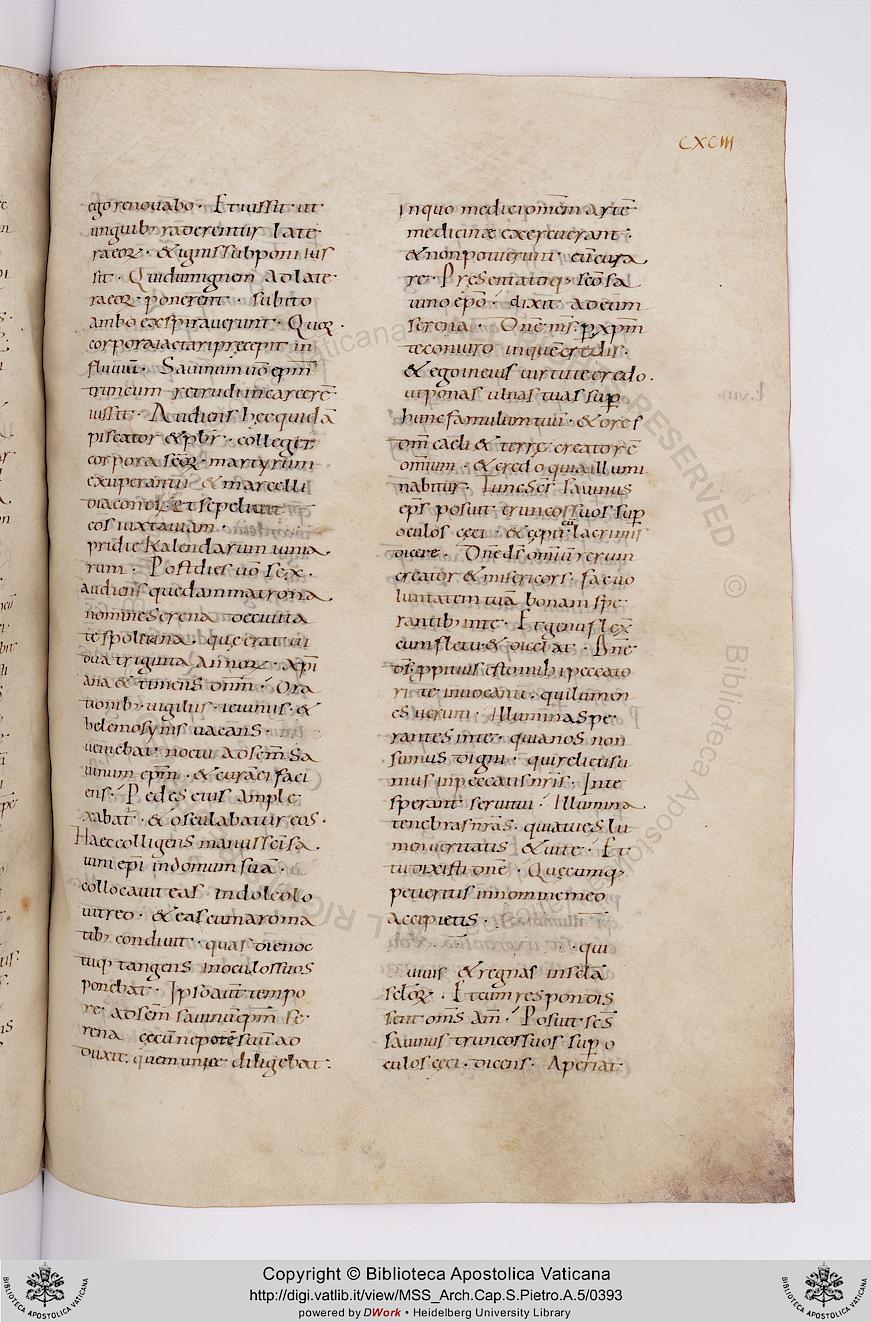 CXCIII
ego renovabo· Et iussit ut
ungulib; raderentur late
raeor̄· & ignis subponi ius
sit· Qui dum ignem ad late·
raeor̄· ponerent· subito
ambo exspiraverunt· Quor̄·
corpora iactari precepit in
fluviū· Savinum ūo epm̄
truncum retrudi in carcerē
iussit· Audiens hec quidā
piscator & pbr̄· collegit
corpora scōr̄· martyrum
exuperantii & marcelli
diaconi· Et sepelivit
eos iuxta viam·
pridie Kalendarum iunia
rum· Post dies ūo sex·
audiens quedam matrona
nomine Serena de civita
te spoletina· que erat iā
dua triginta annor̄· xp̄i
ana & timens dnm̄· Ora
tionib; vigiliis· ieiuniis· &
helemosynis vacans·
veniebat noctu ad scm̄ Sa
vinum epm̄· & cura ei faci
ens· Pedes eius ample
xabat· & osculabatur eos·
Haec colligens manus scī sa
vini epi in domum suā·
collocavit eas in doleolo
vitreo· & eas cum aroma
tib; condivit· quas die noc
tuq; tangens in oculos suos
ponebat· Ipso aūt tempo
re· ad scm̄ savinū epm̄ se
rena cecū nepotē suū ad
duxit· quem unice diligebat·
in quo medici omem̄ artē
medicinæ exercuerant·
& non potuerunt eū cura
re· Presentatusq; scō sa
vino epō· dixit ad eum
serena· Dne ms̄· p̱ xpm
te coniuro in quē credis·
& ego in eius virtute credo·
ut ponas ulnas tuas sup̱
hunc famulum tuū· & ores
dm̄ caeli & terre creatorē
omium· & credo quia illumi
nabitur· Tunc Scs̄ savinus
eps̄ posuit truncos suos sup̱
oculos ceci· & cepit cū lacrimis
dicere· Dne ds̄ omiū rerum
creator & misericors· fac vo
luntatem tuā bonam spe
rantib; in te· Et genu flex̄
cum fletu & dicebat· Dne
ds̄ ppitius esto mihi peccato
ri te invocanti· qui lumen
es verum· Illumina spe
rantes in te· quia nos non
sumus digni· qui relicti su
mus in peccatis nr̄is· In te
sperant servi tui· Illumina
tenebras nr̄as· quia tu es lu
men veritatis & vite· Et
tu dixisti dne· Quecumq;
petieritis in nomine meo
accipietis·
qui
vivis & regnas in scla
sclor̄· Et cum respondis
sent oms̄ am̄· Posuit scs̄
savinus truncos suos sup̱ o
culos ceci· dicens· Aperiat
Copyright © Biblioteca Apostolica Vaticana
http://digi.vatlib.it/view/MSS_Arch.Cap.S.Pietro.A.5/0393
powered by DWork • Heidelberg University Library